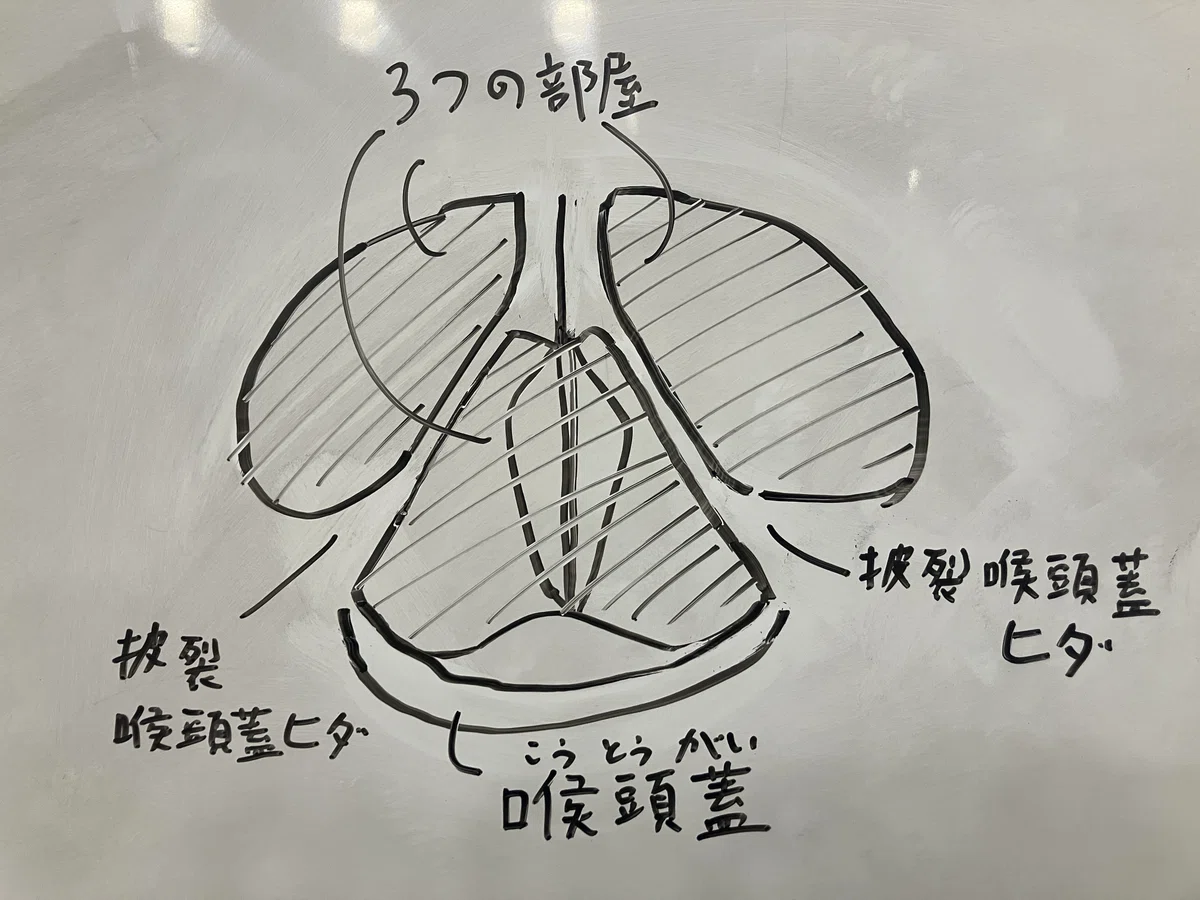 3つの部屋
披裂喉頭蓋
ヒダ
披裂
喉頭蓋ヒダ
こうとうがい
喉頭蓋